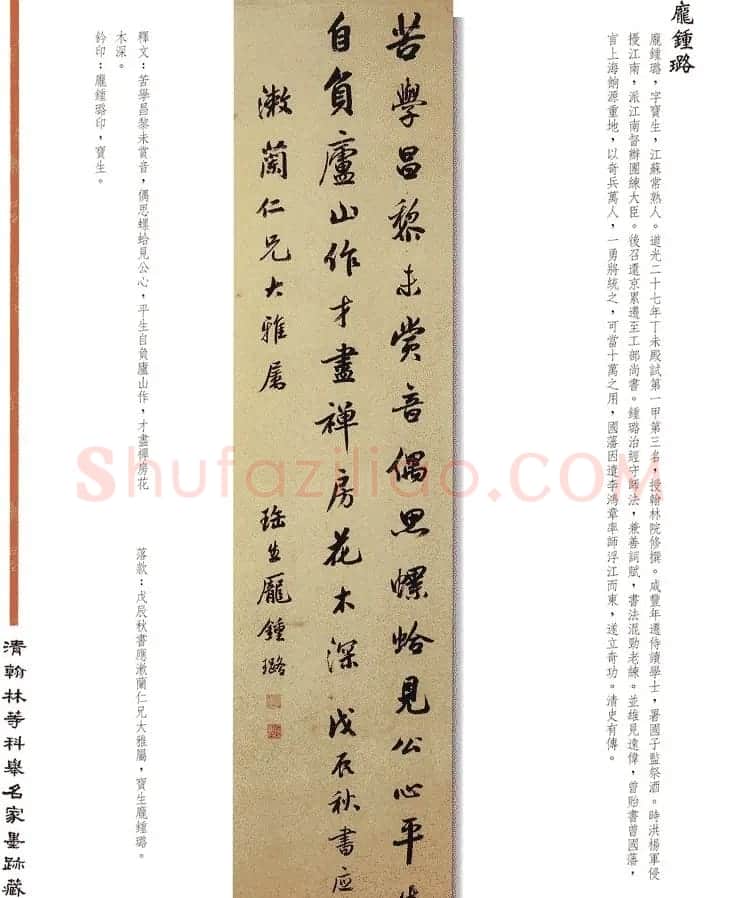 龐鍾璐
龐鍾璐，字寶生，江蘇常熟人。道光二十七年丁未殿試第一甲第三名，授翰林院修撰。咸豐年遷侍讀學士，署國子監祭酒。時洪楊軍侵
擾江南，派江南督辦團練大臣。後召還京累遷至工部尚書。鍾璐治經守師法，兼善詞賦，書法混勁老練。並雄見遠偉，曾貽書曾國藩，
言上海餉源重地，以奇兵萬人，一勇將統之，可當十萬之用，國藩因遣李鴻章率師浮江而東，遂立奇功。清史有傳。
苦學昌黎未賞音偶思螺蛤見公心平生
自負廬山作才盡禪房花木深戊辰秋書應
漱蘭仁兄大雅屬
寶生龐鍾璐
釋文：苦學昌黎未賞音，偶思螺蛤見公心，平生自負廬山作，才盡禪房花
木深。
落款：戊辰秋書應漱蘭仁兄大雅屬，寶生龐鍾璐。
鈐印：龐鍾璐印，寶生。
清翰林等科舉名家墨跡藏
Shufaziliao.COM